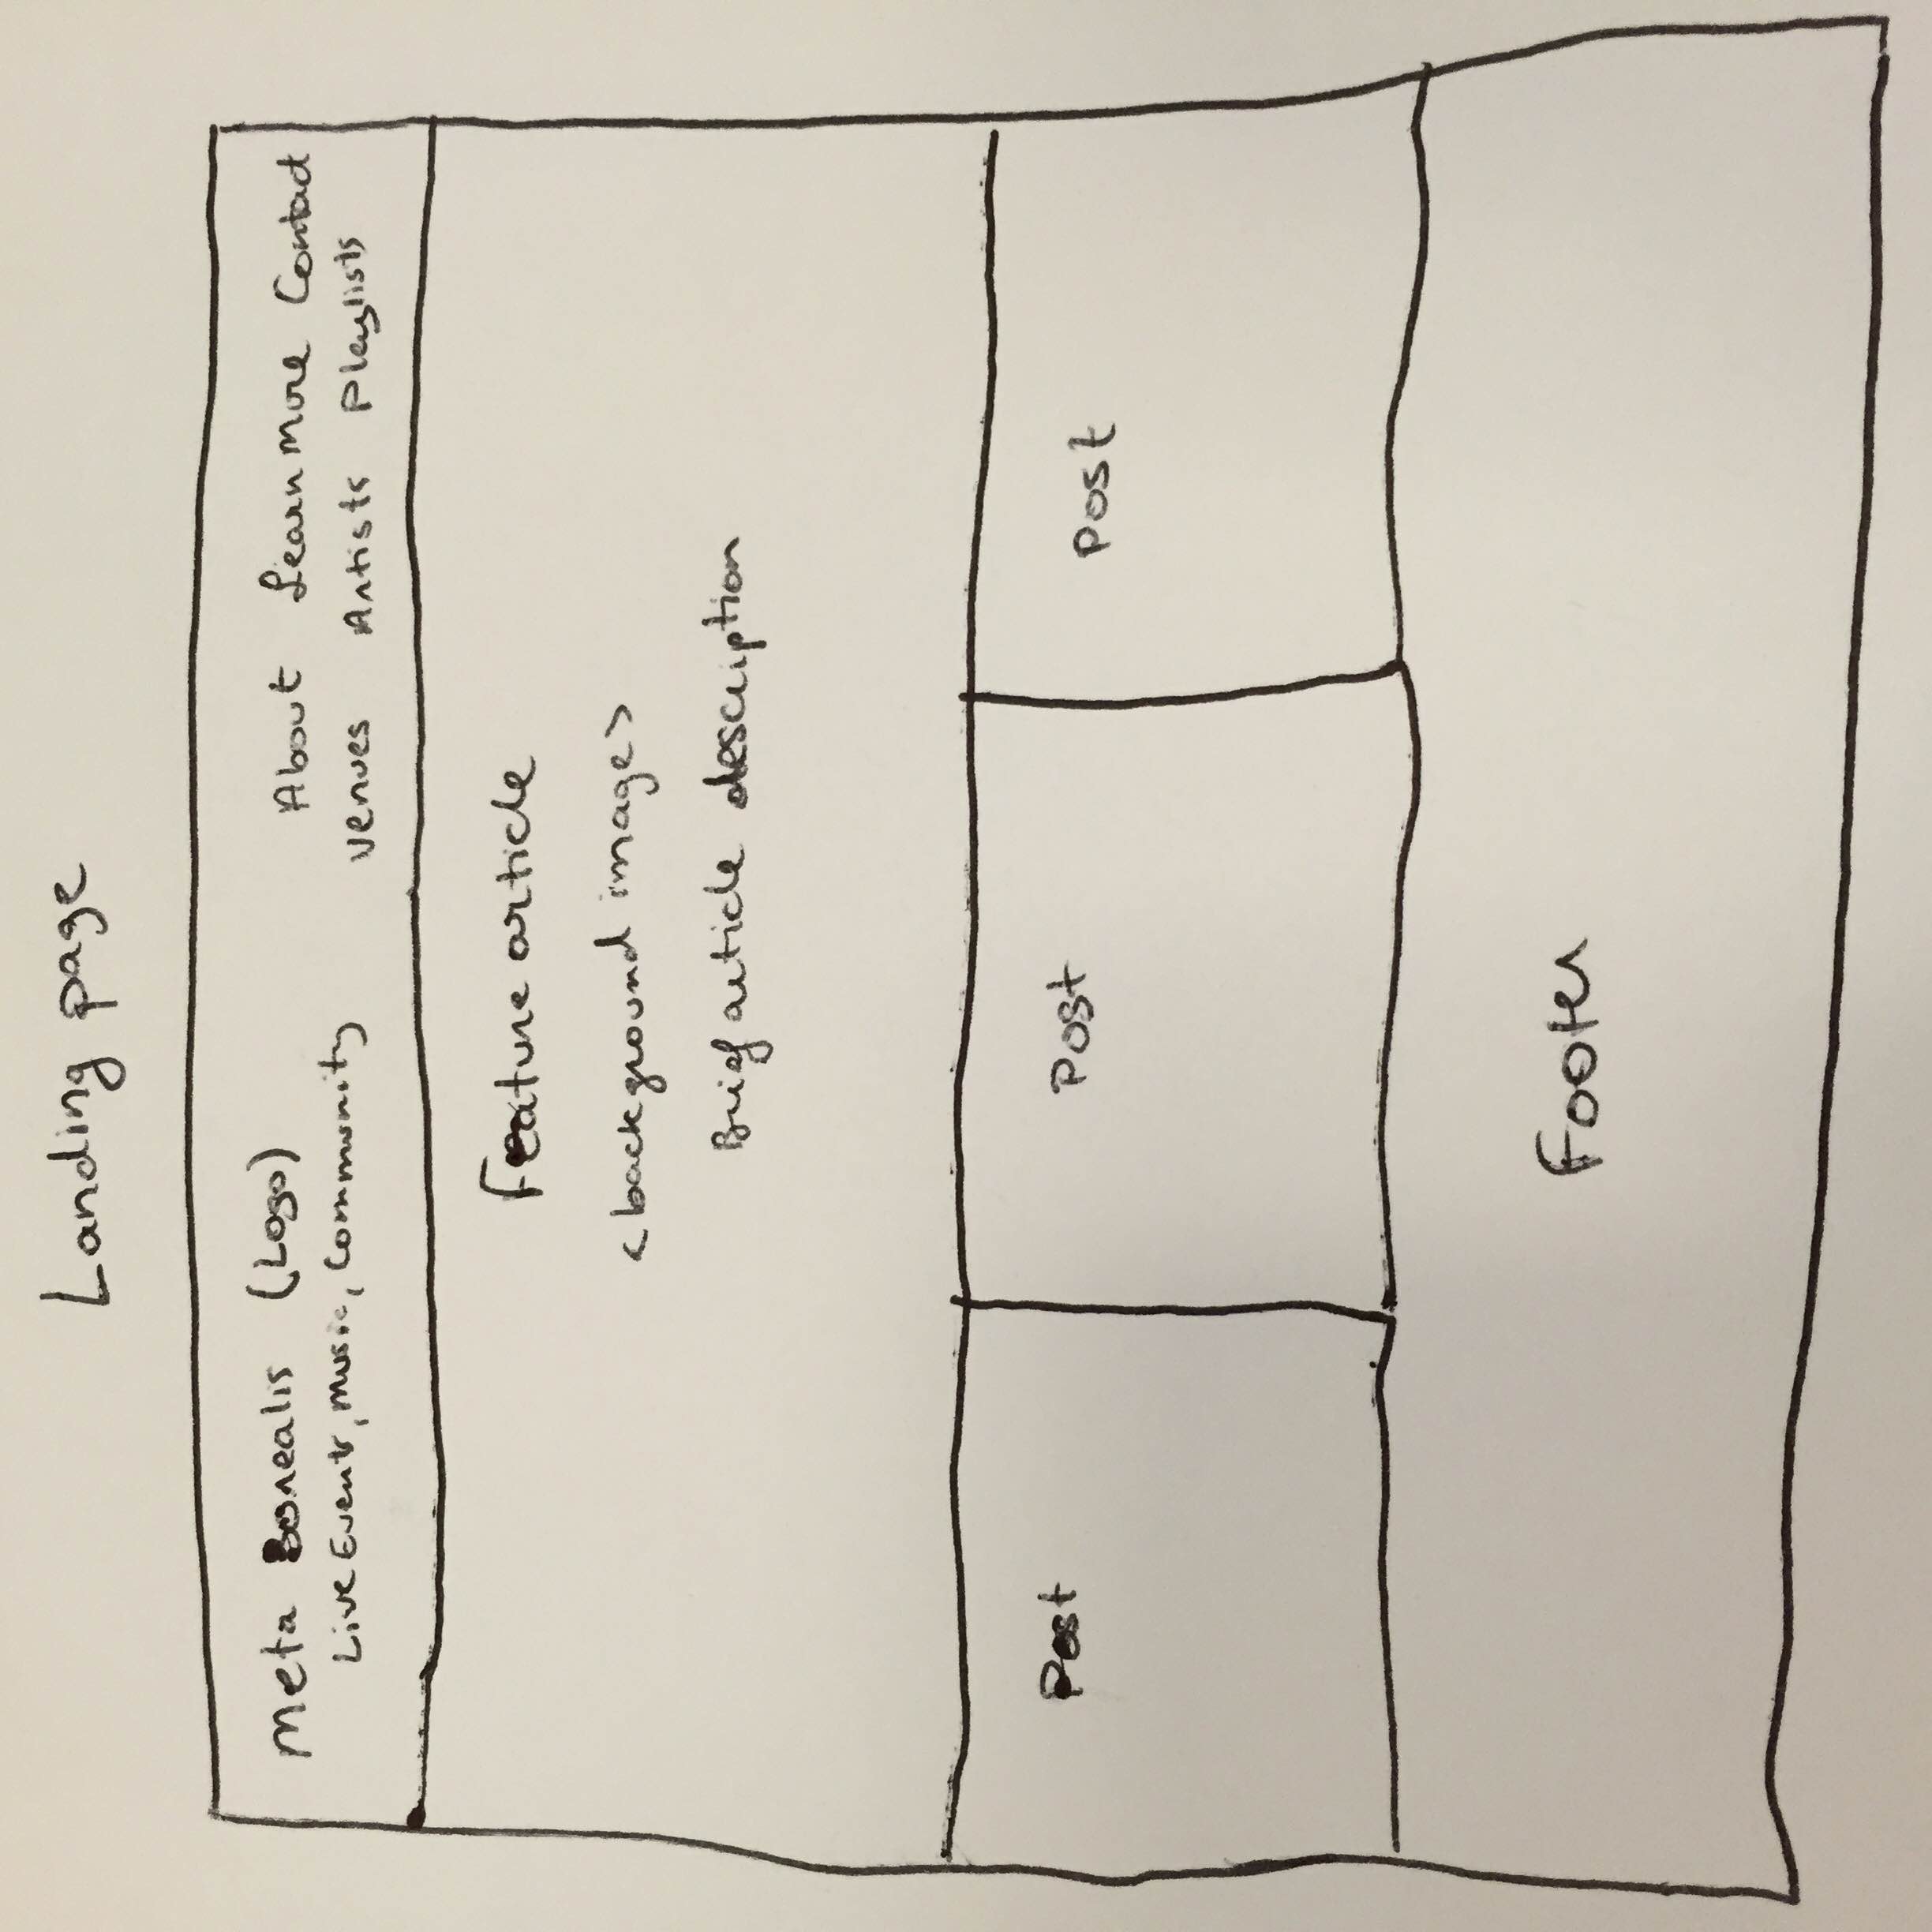 Landing page
Meta Borealis (Logo)
Live Events, Music, Community
About Learn more Contact
Venues Artists Playlists
Feature article
<background image>
Brief article description
Post
Post
Post
Footer